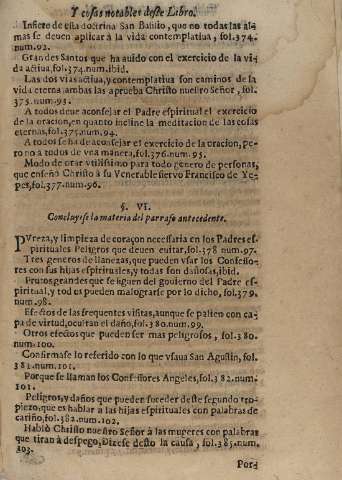 Y cosas notables deste Libro.
Infierese de esta doctrina San Basilio, que no todas las al-
mas se deuen aplicar à la vida contemplatiua, fol.374.
num.92.
Grandes Santos que ha auido con el exercicio de la vi-
da actiua, fol.374.num.ibid.
Las dos vias actiua, y contemplatiua son caminos de la
vida eterna, ambas las aprueba Christo nuestro Señor, fol.
375.num.93.
A todos deue aconsejar el Padre espiritual el exercicio
de la oracion, en quanto incline la meditacion de las cosas
eternas, fol.375.num.94.
A todos se ha de aconsejar el exercicio de la oracion, pe-
ro no à todos de vna manera, fol.376.num.95.
Modo de orar vtilissimo para todo genero de personas,
que enseñò Christo à su Venerable siervo Francisco de Ye-
pes, fol.377.num.96.
§. VI.
Concluyese la materia del parrafo antecedente.
PVreza, y limpieza de coraçon necessaria en los Padres es-
pirituales Peligros que deuen euitar, fol.378.num.97.
Tres generos de llanezas, que pueden vsar los Confesso-
res con sus hijas espirituales, y todas son dañosas, ibid.
Frutos grandes que se siguen del gouierno del Padre es-
piritual, y todos pueden malograrse por lo dicho, fol.379.
num.98.
Efectos de las frequentes visitas, aunque se palien con ca-
pa de virtud, ocultan el daño, fol.380.num.99.
Otros efectos que pueden ser mas peligrosos, fol.380.
num.100.
Confirmase lo referido con lo que vsaua San Agustin, fol.
381.num.101.
Porque se llaman los Confessores Angeles, fol.382.num.
101.
Peligros, y daños que pueden suceder deste segundo tro-
piezo, que es hablar a las hijas espirituales con palabras de
cariño, fol.382.num.102.
Hablò Christo nuestro Señor à las mugeres con palabras
que tiran à despego, Dizese desto la causa, fol.385.num.
103.
Por-